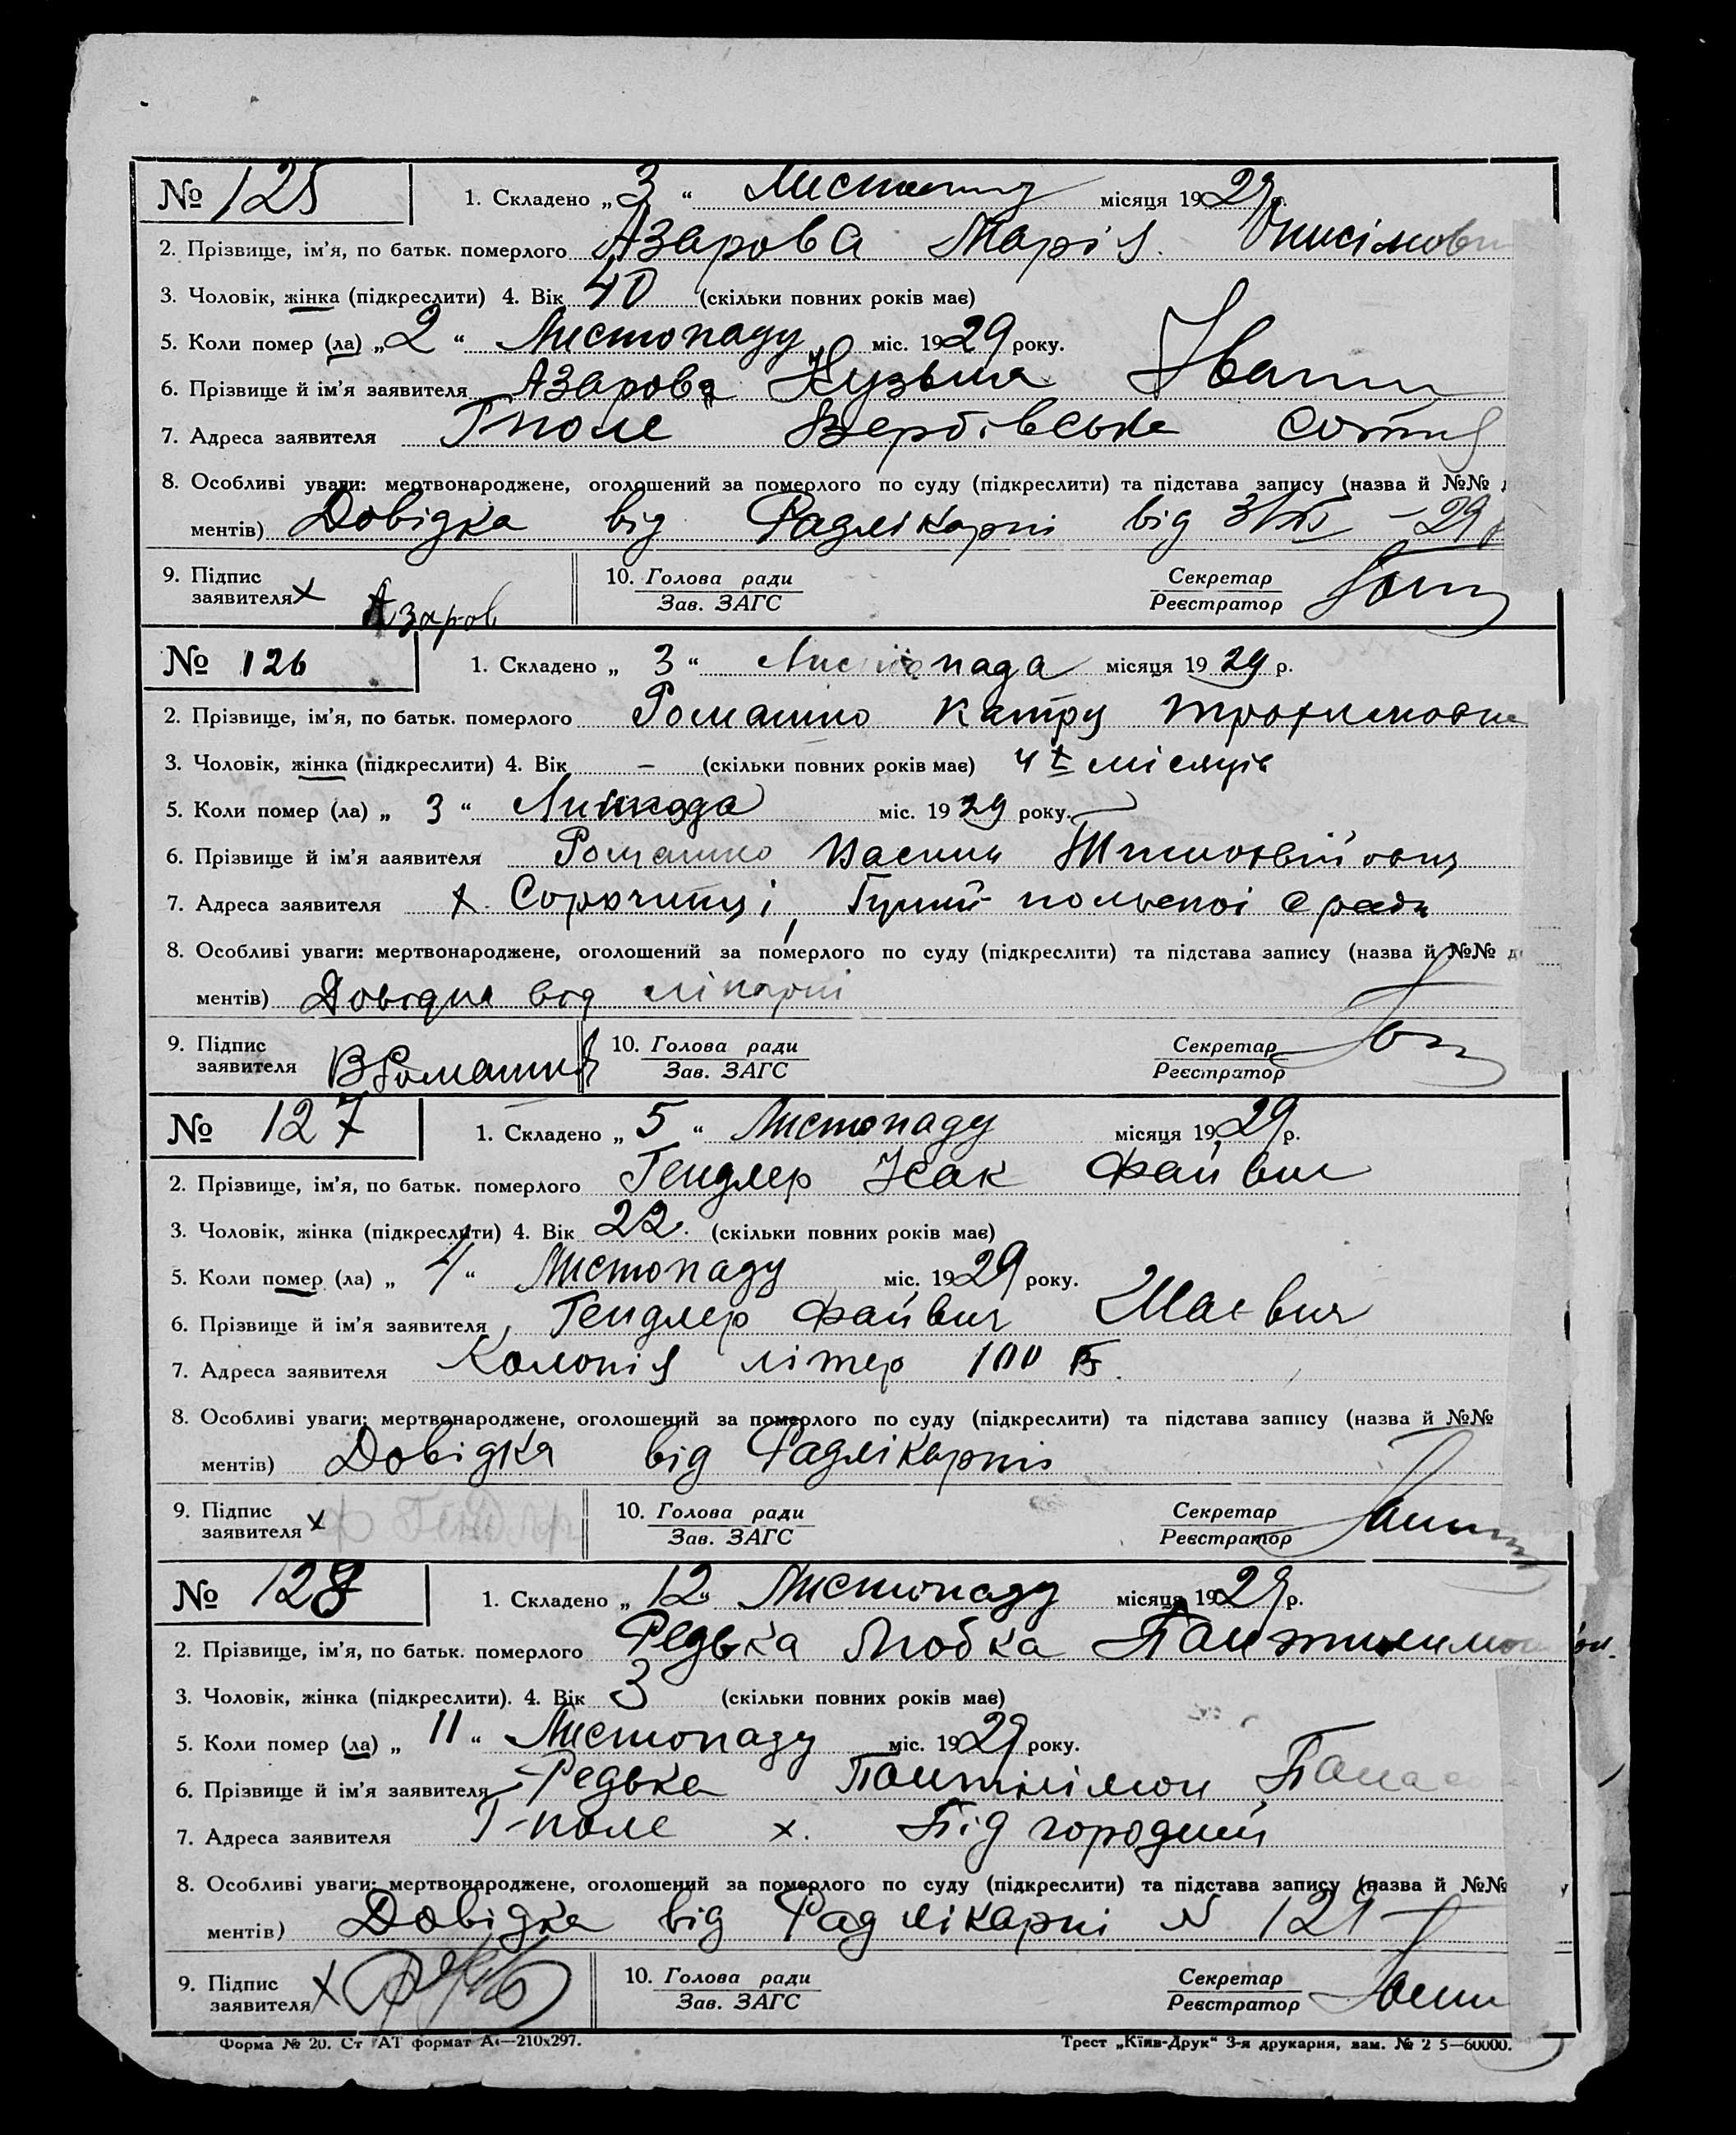 № 125 1. Складено „ 3 “ Листопаду місяця 1929 р.
2. Прізвище, ім'я, по батьк. померлого Азарова Марія Онисімовн
3. Чоловік, жінка (підкреслити) 4. Вік 40 (скільки повних років має)
5. Коли помер (ла) „ 2 “ Листопаду міс. 1929 року.
6. Прізвище й ім'я заявителя Азарова Кузьма Іван
7. Адреса заявителя Гполе Вербівська сотня
8. Особливі уваги: мертвонароджене, оголошений за померлого по суду (підкреслити) та підстава запису (назва й №№ д
ментів) Довідка від Радлікарні від 3/XI – 29 р
9. Підпис заявителя х Азаров 10. Голова ради Зав. ЗАГС Секретар Реєстратор
№ 126 1. Складено „ 3 “ Листопада місяця 1929 р.
2. Прізвище, ім'я, по батьк. померлого Ромашко Катру Трохимовна
3. Чоловік, жінка (підкреслити) 4. Вік – (скільки повних років має) 4х місяців
5. Коли помер (ла) „ 3 “ міс. 1929 року.
6. Прізвище й ім'я заявителя Ромашко Василь Тимофійович
7. Адреса заявителя х. Сорочинці, польської с ради
8. Особливі уваги: мертвонароджене, оголошений за померлого по суду (підкреслити) та підстава запису (назва й №№ д
ментів) Довідка від лікарні
9. Підпис заявителя В Ромашко 10. Голова ради Зав. ЗАГС Секретар Реєстратор
№ 127 1. Складено „ 5 “ Листопаду місяця 1929 р.
2. Прізвище, ім'я, по батьк. померлого Гендлер Ісак Файвич
3. Чоловік, жінка (підкреслити) 4. Вік 22. (скільки повних років має)
5. Коли помер (ла) „ 4 “ Листопаду міс. 1929 року.
6. Прізвище й ім'я заявителя Гендлер Файвич Шаевич
7. Адреса заявителя Колонія літер 100 Б.
8. Особливі уваги: мертвонароджене, оголошений за померлого по суду (підкреслити) та підстава запису (назва й №№
ментів) Довідка від Радлікарні
9. Підпис заявителя х Ф Гендлер 10. Голова ради Зав. ЗАГС Секретар Реєстратор
№ 128 1. Складено „ 12 “ Листопаду місяця 1929 р.
2. Прізвище, ім'я, по батьк. померлого Редька Любка Пантилимон
3. Чоловік, жінка (підкреслити). 4. Вік 3 (скільки повних років має)
5. Коли помер (ла) „ 11 “ Листопаду міс. 1929 року.
6. Прізвище й ім'я заявителя Редька Пантилімон Панас
7. Адреса заявителя Г-поле х. Підгородний
8. Особливі уваги: мертвонароджене, оголошений за померлого по суду (підкреслити) та підстава запису (назва й №№
ментів) Довідка від Радлікарні N 121
9. Підпис заявителя х 10. Голова ради Зав. ЗАГС Секретар Реєстратор
Форма № 20. Ст АТ формат А4—210х297. Трест „Київ-Друк“ 3-я друкарня, зам. № 2 5—60000.